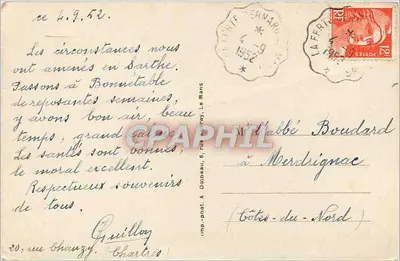 ce 4.9.52.
Les circonstances nous
ont amenés en Sarthe.
Passons à Bonnétable
de reposantes semaines,
y avons bon air, beau
temps, grand calme.
Les santés sont bonnes,
le moral excellent.
Respectueux souvenirs
de tous.
Guillon
20, rue Chanzy.
Chartres
Imp.-phot. A. Dolbeau, 6, rue Le Mans
LA FERTE BERNARD
4 -9
1952
LA FERTE
4
1952
POSTES
12F
GRAPHIL
Mr l'abbé Boudard
à
Merdrignac
(Côtes-du-Nord)